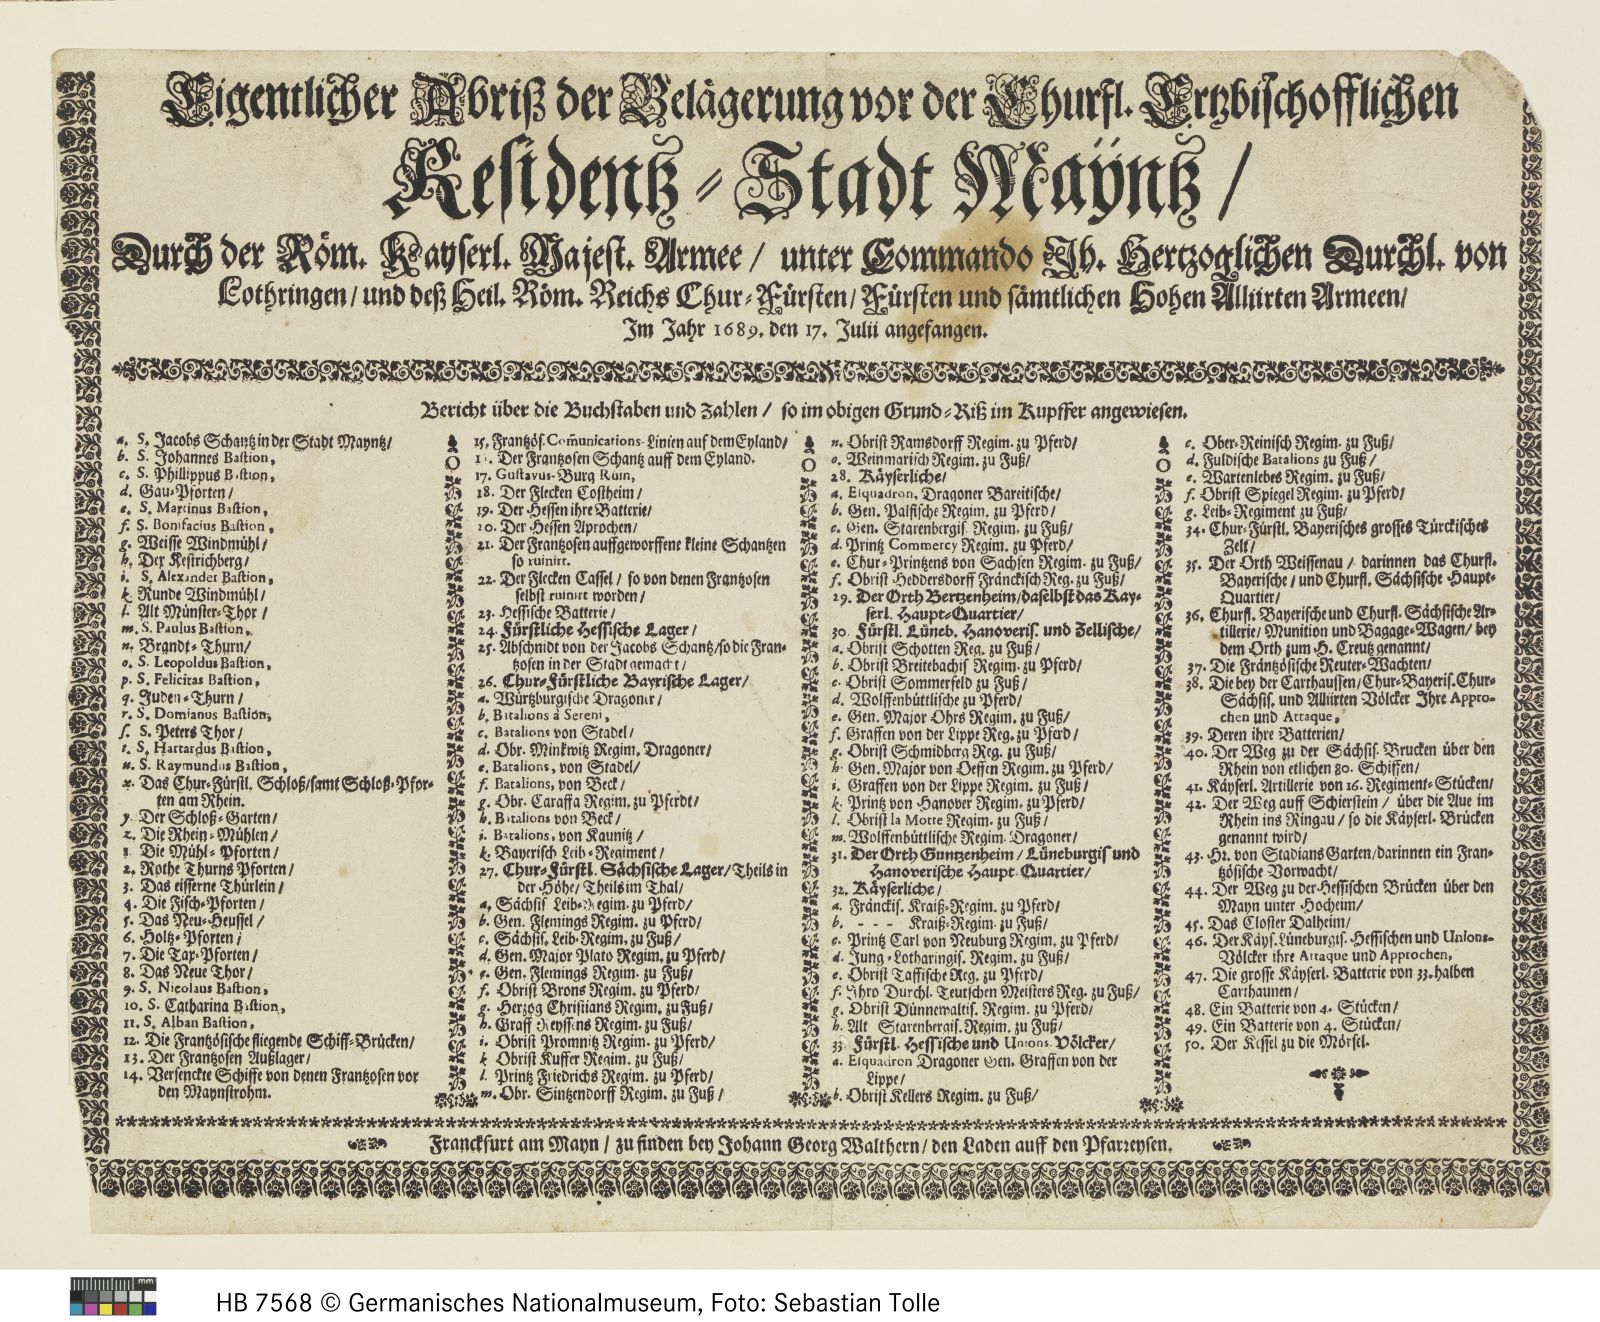 Eigentlicher Abriß der Belägerung vor der Churfl. Ertzbischofflichen
Residentz-Stadt Mayntz/
Durch der Röm. Kayserl. Majest. Armee/ unter Commando Ih. Hertzoglichen Durchl. von
Lothringen/ und deß Heil. Röm. Reichs Chur-Fürsten/ Fürsten und sämtlichen Hohen Alliirten Armeen/
Im Jahr 1689. den 17. Julii angefangen.
Bericht über die Buchstaben und Zahlen/ so im obigen Grund-Riß im Kupffer angewiesen.
a. S. Jacobs Schantz in der Stadt Mayntz/
b. S. Johannes Bastion,
c. S. Phillippus Bastion,
d. Gau-Pforten/
e. S. Martinus Bastion,
f. S. Bonifacius Bastion,
g. Weisse Windmühl/
h. Der Kestrichberg/
i. S. Alexander Bastion,
k. Runde Windmühl/
l. Alt Münster-Thor/
m. S. Paulus Bastion,
n. Brandt-Thurn/
o. S. Leopoldus Bastion,
p. S. Felicitas Bastion,
q. Juden-Thurn/
r. S. Domianus Bastion,
s. S. Peters Thor/
t. S. Hattardus Bastion,
u. S. Raymundus Bastion,
x. Das Chur-Fürstl. Schloß/ samt Schloß-Pfor-
ten am Rhein.
y. Der Schloß-Garten/
z. Die Rhein-Mühlen/
1. Die Mühl-Pforten/
2. Rothe Thurns Pforten/
3. Das eisserne Thürlein/
4. Die Fisch-Pforten/
5. Das Neu-Heussel/
6. Holtz-Pforten/
7. Die Tax-Pforten/
8. Das Neue Thor/
9. S. Nicolaus Bastion,
10. S. Catharina Bastion,
11. S. Alban Bastion,
12. Die Frantzösische fliegende Schiff-Brücken/
13. Der Frantzosen Außlager/
14. Versenckte Schiffe von denen Frantzosen vor
den Maynstrohm.
15. Frantzös. Comunications-Linien auf dem Eyland/
Der Frantzosen Schantz auff dem Eyland.
17. Gustavus-Burg Ruin,
18. Der Flecken Costheim/
19. Der Hessen ihre Batterie/
20. Der Hessen Aprochen/
21. Der Frantzosen auffgeworffene kleine Schantzen
so ruinirt.
22. Der Flecken Cassel/ so von denen Frantzosen
selbst ruinirt worden/
23. Hessische Batterie/
24. Fürstliche Hessische Lager/
25. Abschnidt von der Jacobs Schantz/ so die Fran-
tzosen in der Stadt gemacht/
26. Chur-Fürstliche Bayrische Lager/
a. Würtzburgische Dragoner/
b. Batalions à Sereni,
c. Batalions von Stadel/
d. Obr. Minkwitz Regim. Dragoner/
e. Batalions, von Stadel/
f. Batalions, von Beck/
g. Obr. Caraffa Regim. zu Pferdt/
h. Batalions von Beck/
i. Batalions, von Kaunitz/
k. Bayerisch Leib-Regiment/
27. Chur-Fürstl. Sächsische Lager/ Theils in
der Höhe/ Theils im Thal/
a. Sächsis. Leib-Regim. zu Pferd/
b. Gen. Flemings Regim. zu Pferd/
c. Sächsis. Leib-Regim. zu Fuß/
d. Gen. Major Plato Regim. zu Pferd/
e. Gen. Flemings Regim. zu Fuß/
f. Obrist Brons Regim. zu Pferd/
g. Hertzog Christians Regim. zu Fuß/
h. Graff Regim. zu Fuß/
i. Obrist Promnitz Regim. zu Pferd/
k. Obrist Kuffer Regim. zu Fuß/
l. Printz Friedrichs Regim. zu Pferd/
m. Obr. Sintzendorff Regim. zu Fuß/
n. Obrist Ramsdorff Regim. zu Pferd/
o. Weinmarisch Regim. zu Fuß/
28. Käyserliche/
a. Esquadron, Dragoner Bareitische/
b. Gen. Palfische Regim. zu Pferd/
c. Gen. Starenbergis. Regim. zu Fuß/
d. Printz Commercy Regim. zu Pferd/
e. Chur-Printzens von Sachsen Regim. zu Fuß/
f. Obrist Heddersdorff Fränckisch Reg. zu Fuß/
29. Der Orth Bertzenheim/ daselbst das Kay-
serl. Haupt-Quartier/
30. Fürstl. Lüneb. Hanoveris. und Zellische/
a. Obrist Schotten Reg. zu Fuß/
b. Obrist Breitebachis Regim. zu Pferd/
c. Obrist Sommerfeld zu Fuß/
d. Wolffenbüttlische zu Pferd/
e. Gen. Major Ohrs Regim. zu Fuß/
f. Graffen von der Lippe Reg. zu Pferd/
g. Obrist Schmidberg Reg. zu Fuß/
h. Gen. Major von Oeffen Regim. zu Pferd/
i. Graffen von der Lippe Regim. zu Fuß/
k. Printz von Hanover Regim. zu Pferd/
l. Obrist la Motte Regim. zu Fuß/
m. Wolffenbüttlische Regim. Dragoner/
31. Der Orth Guntzenheim/ Lüneburgis und
Hanoverische Haupt-Quartier/
32. Käyserliche/
a. Fränckis. Kraiß-Regim. zu Pferd/
b. - - - Kraiß-Regim. zu Fuß/
c. Printz Carl von Neuburg Regim. zu Pferd/
d. Jung-Lotharingis. Regim. zu Fuß/
e. Obrist Taffische Reg. zu Pferd/
f. Ihro Durchl. Teutschen Meisters Reg. zu Fuß/
g. Obrist Dünnewaltis. Regim. zu Pferd/
h. Alt Starenbergis. Regim. zu Fuß/
33. Fürstl. Hessische und Unions-Völcker/
a. Esquadron Dragoner Gen. Graffen von der
Lippe/
b. Obrist Kellers Regim. zu Fuß/
c. Ober-Reinisch Regim. zu Fuß/
d. Fuldische Batalions zu Fuß/
e. Wartenlebes Regim. zu Fuß/
f. Obrist Spiegel Regim. zu Pferd/
g. Leib-Regiment zu Fuß/
34. Chur-Fürstl. Bayerisches grosses Türckisches
Zelt/
35. Der Orth Weissenau/ darinnen das Churfl.
Bayerische/ und Churfl. Sächsische Haupt-
Quartier/
36. Churfl. Bayerische und Churfl. Sächsische Ar-
tillerie/ Munition und Bagage-Wagen/ bey
dem Orth zum H. Creutz genannt/
37. Die Frantzösische Reuter-Wachten/
38. Die bey der Carthaussen/ Chur-Bayeris. Chur-
Sächsis. und Alliirten Völcker Ihre Appro-
chen und Attaque,
39. Deren ihre Batterien/
40. Der Weg zu der Sächsis. Brucken über den
Rhein von etlichen 80. Schiffen/
41. Käyserl. Artillerie von 16. Regiment-Stücken/
42. Der Weg auff Schierstein/ über die Aue im
Rhein ins Ringau/ so die Käyserl. Brücken
genannt wird/
43. Hr. von Stadians Garten/ darinnen ein Fran-
tzösische Vorwacht/
44. Der Weg zu der Hessischen Brücken über den
Mayn unter Hocheim/
45. Das Closter Dalheim/
46. Der Käys. Lüneburgis. Hessischen und Unions-
Völcker ihre Attaque und Approchen,
47. Die grosse Käyserl. Batterie von 33. halben
Carthaunen/
48. Ein Batterie von 4. Stücken/
49. Ein Batterie von 4. Stücken/
50. Der Kessel zu die Mörsel.
Franckfurt am Mayn/ zu finden bey Johann Georg Walthern/ den Laden auff den Pfarreysen.
HB 7568 © Germanisches Nationalmuseum, Foto: Sebastian Tolle